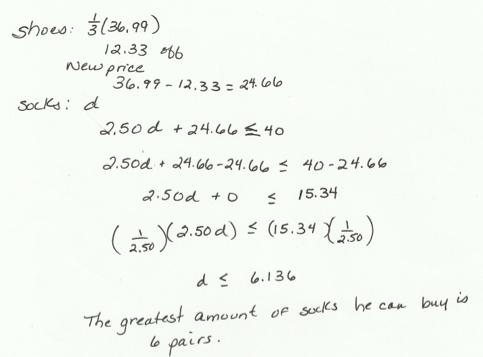 shoes: 1/3(36.99)
12.33 off
New price
36.99 - 12.33 = 24.66
socks: d
2.50d + 24.66 ≤ 40
2.50d + 24.66 - 24.66 ≤ 40 - 24.66
2.50d + 0 ≤ 15.34
(1/2.50)(2.50d) ≤ (15.34)(1/2.50)
d ≤ 6.136
The greatest amount of socks he can buy is
6 pairs.